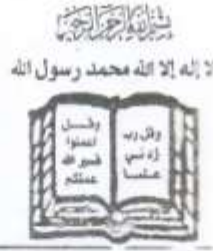 بسم الله الرحمن الرحيم
لا إله إلا الله محمد رسول الله
وقل رب
زدني
علما
وقل
اعملوا
فسيرى الله
عملكم